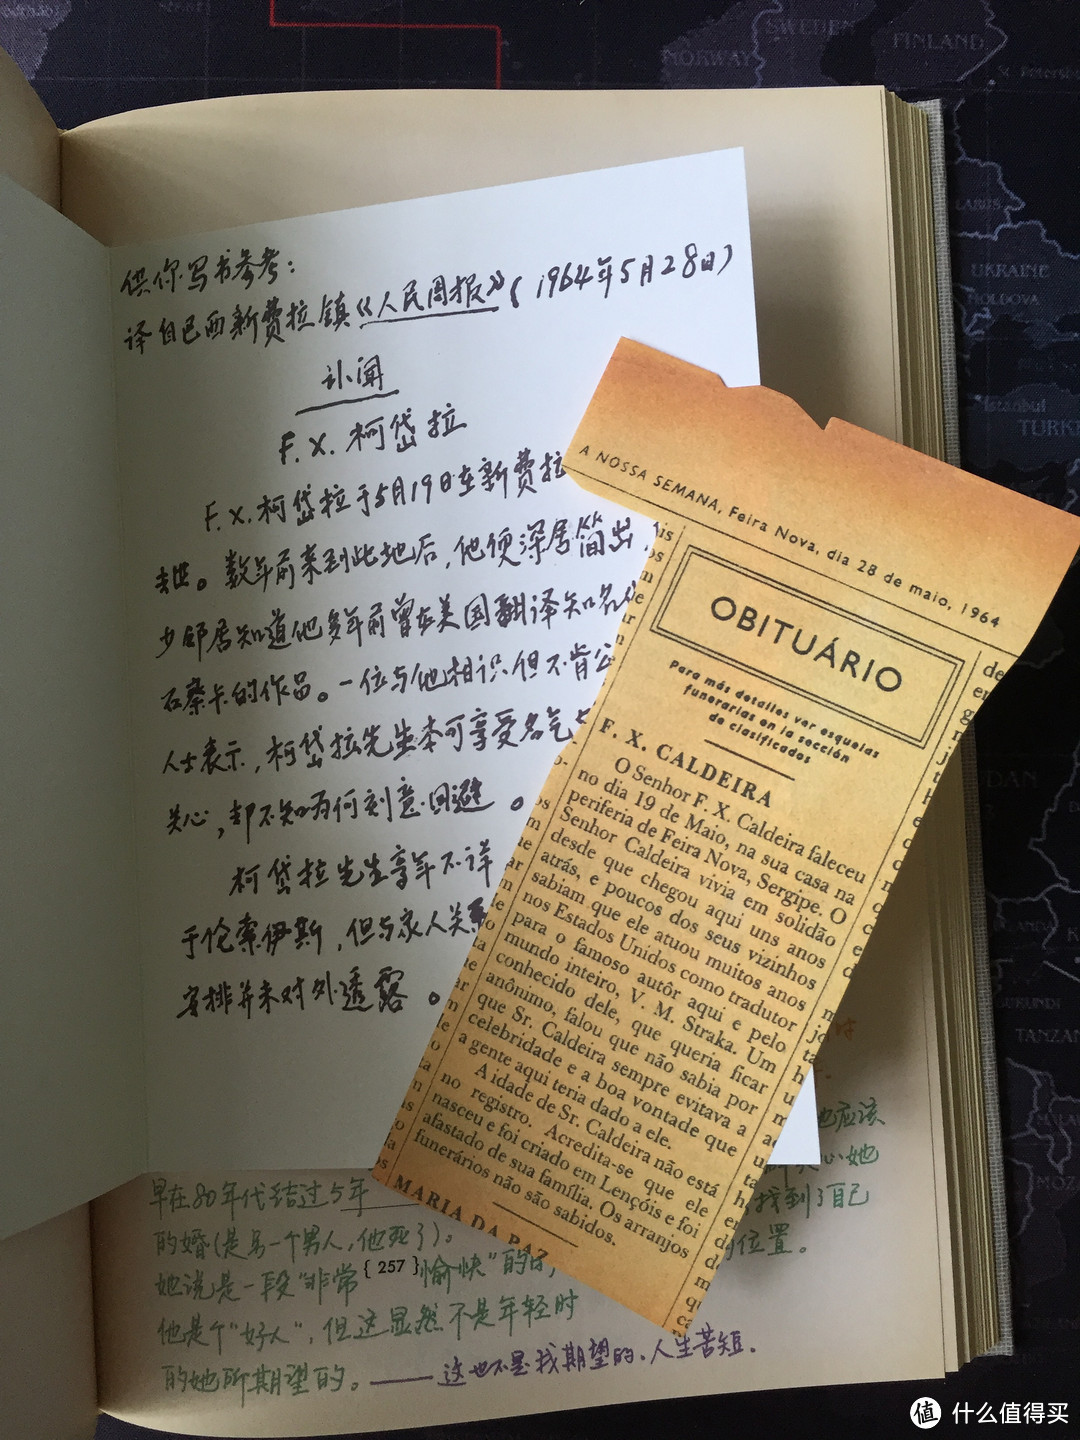 供你写书参考：
译自巴西新费拉镇《人民周报》（1964年5月28日）
讣闻
F. X. 柯岱拉
F. X. 柯岱拉于5月19日在新费拉
去世。数年前来到此地后，他便深居简出，
少邻居知道他多年前曾在美国翻译知名作
石察卡的作品。一位与他相识但不肯公
人士表示，柯岱拉先生本可享受名气与
关心，却不知为何刻意回避。
柯岱拉先生享年不详
于伦索伊斯，但与家人关系
安排并未对外透露。
A NOSSA SEMANA, Feira Nova, dia 28 de maio, 1964
OBITUÁRIO
Para más detalles ver esquelas
funerarias en la sección
de clasificados
F. X. CALDEIRA
O Senhor F. X. Caldeira faleceu
no dia 19 de Maio, na sua casa na
periferia de Feira Nova, Sergipe. O
Senhor Caldeira vivia em solidão
desde que chegou aqui uns anos
atrás, e poucos dos seus vizinhos
sabiam que ele atuou muitos anos
nos Estados Unidos como tradutor
para o famoso autôr aqui e pelo
mundo inteiro, V. M. Straka. Um
conhecido dele, que queria ficar
anônimo, falou que não sabia por
que Sr. Caldeira sempre evitava a
celebridade e a boa vontade que
a gente aqui teria dado a ele.
A idade de Sr. Caldeira não está
no registro. Acredita-se que ele
nasceu e foi criado em Lençóis e foi
afastado de sua família. Os arranjos
funerários não são sabidos.
MARIA DA PAZ
也应该
心她
早在80年代结过5年
找到了自己
的婚（是另一个男人，他死了）。
位置。
她说是一段“非常{ 257 }愉快”的
他是个“好人”，但这显然不是年轻时
的她所期望的。——这也不是我期望的。人生苦短.
值 什么值得买
SWEDEN
NORWAY
FINLAND
UKRAINE
MOLDOVA
Istanbul
TURKE
TANZAN